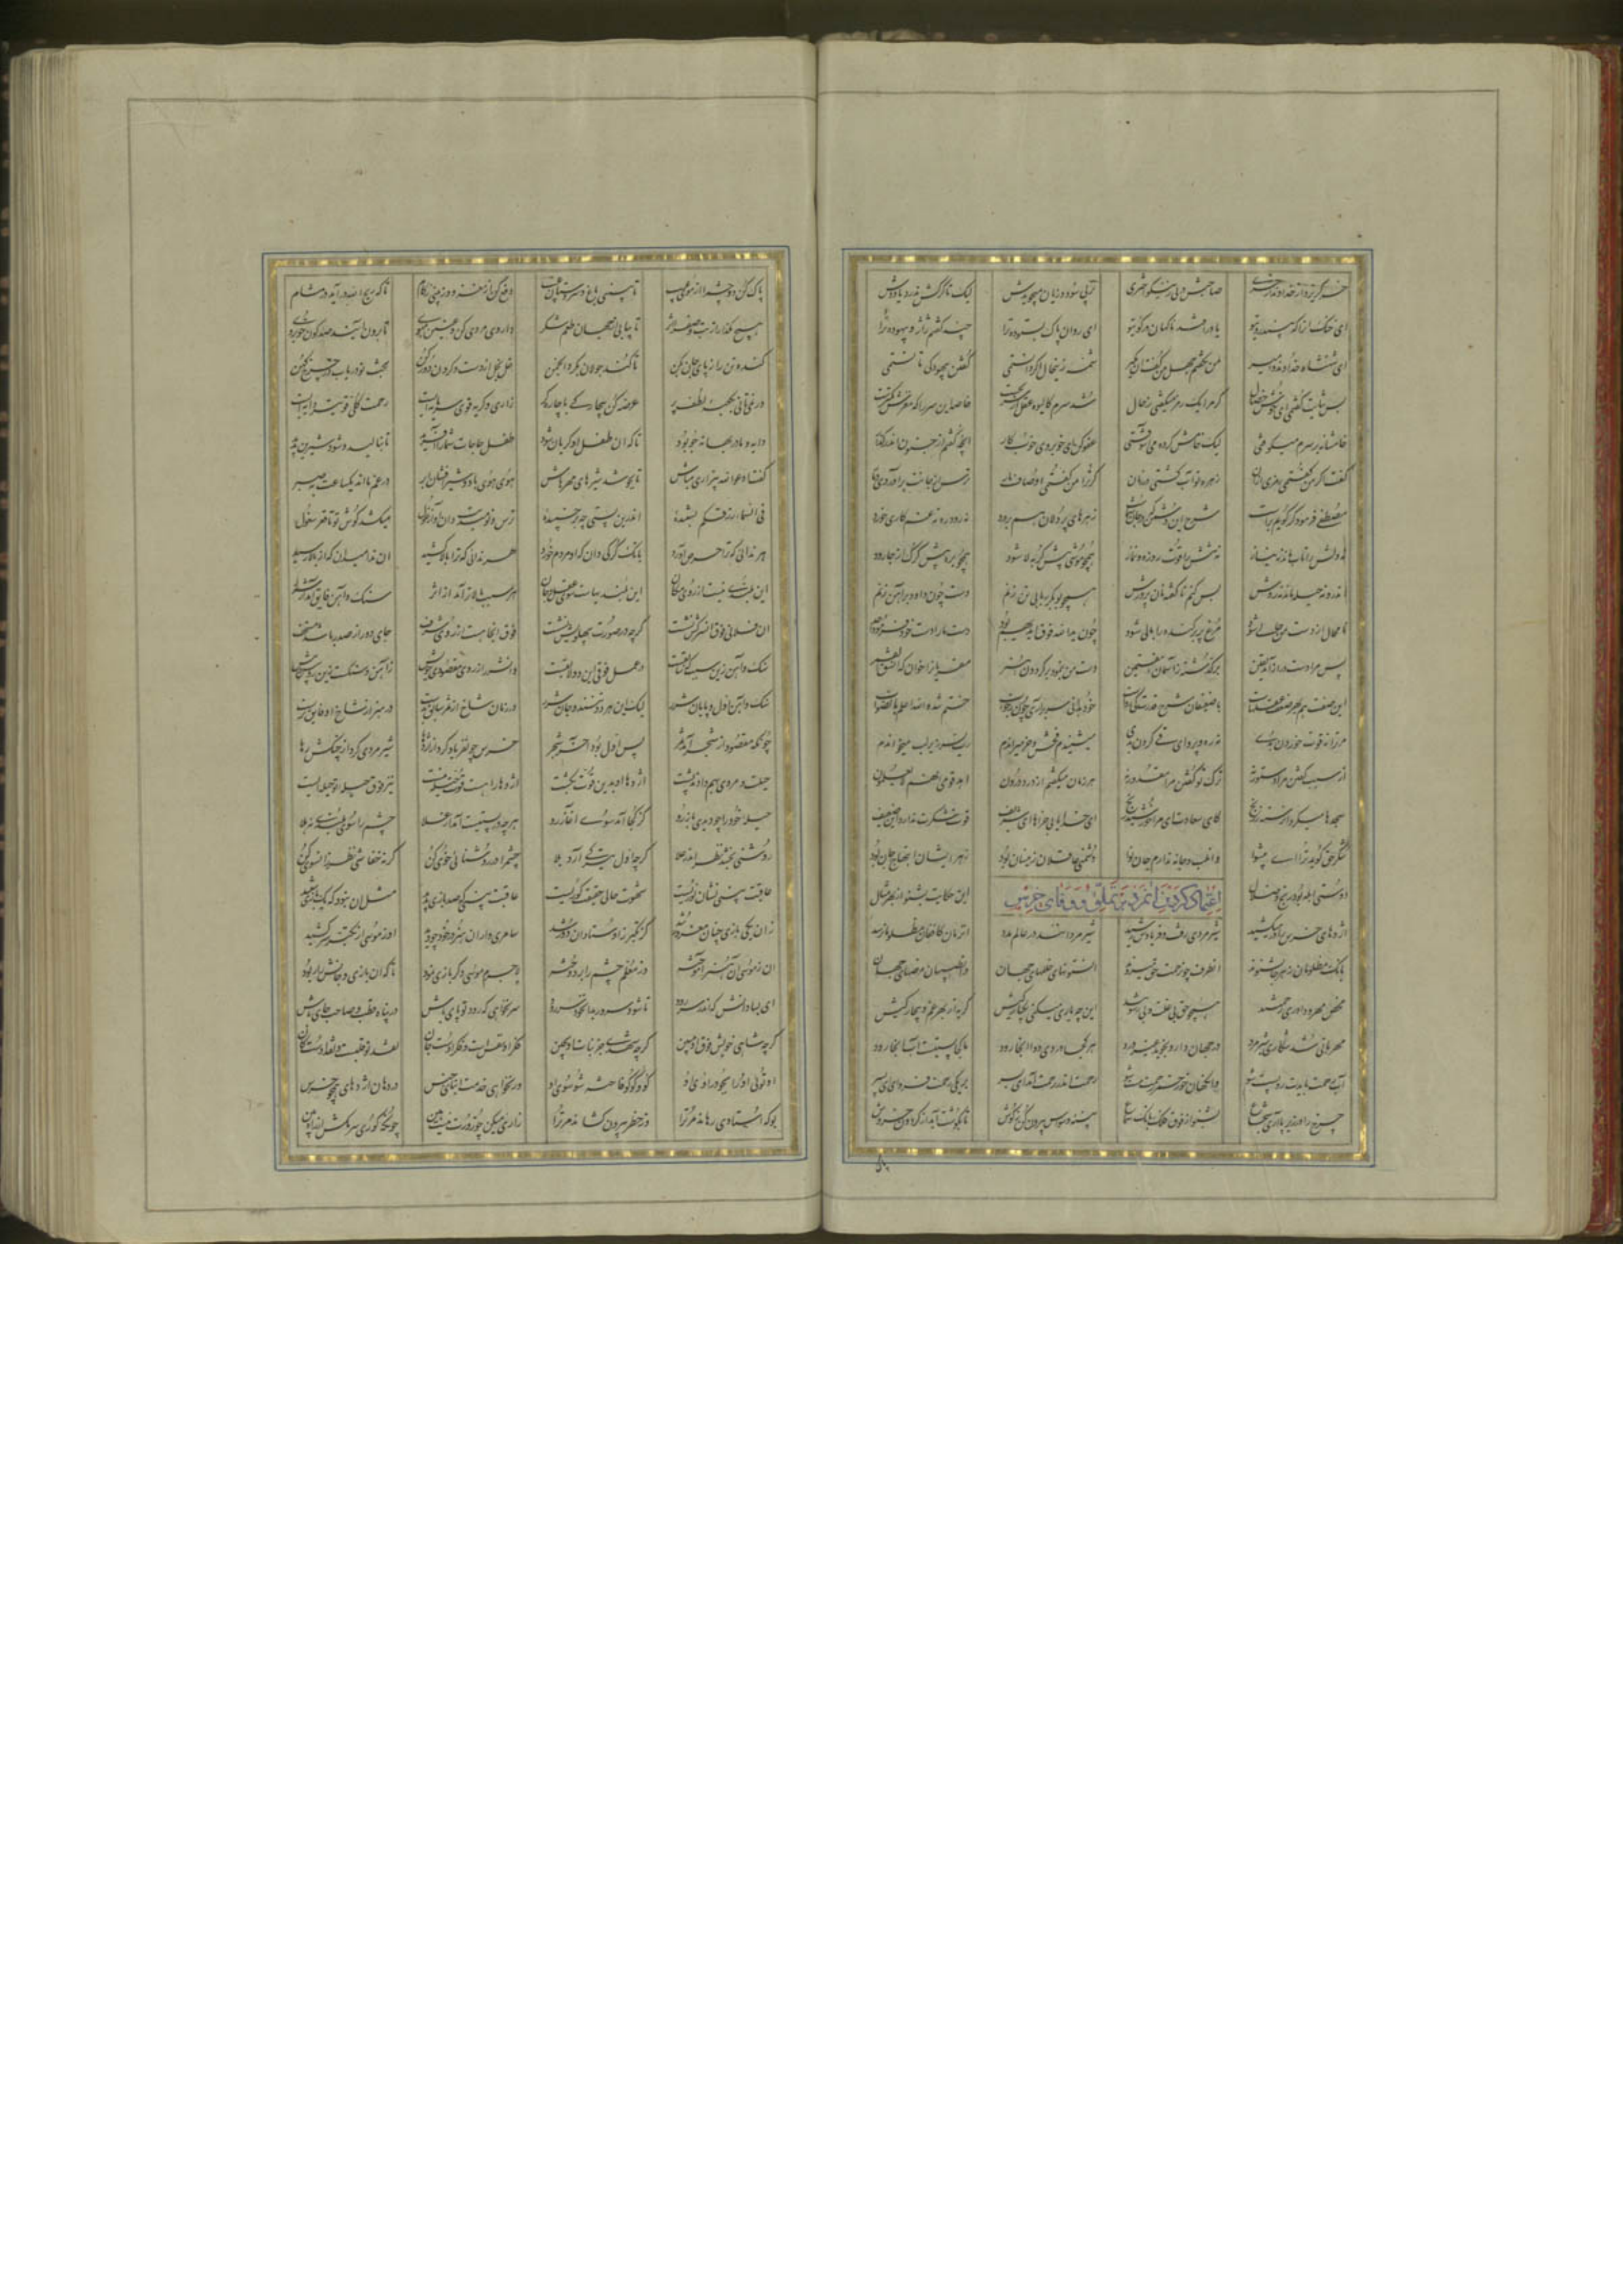 خر گریزد از خداوند از خری صاحبش در پی ز نیکو گوهری نز پی سود و زیان میجویدش لیک تا گرگش ندرد یا ددش
ای خنک آنرا که بیند روی تو یا درافتد ناگهان در کوی تو ای روان پاک بستوده ترا چند گفتم ژاژ و بیهوده ترا
ای شهنشاه و خداوند و امیر من نگفتم جهل من گفت آن مگیر شمه زین حال اگر دانستمی گفتن بیهودگی تانستمی
بس ثنایت گفتمی ای خوش خصال گر مرا یک رمز میگفتی ز حال شد سرم کالیوه عقل از سر بجست خاصه این سر را که مغزش کمترست
خامشانه بر سرم میکوفتی لیک خامش کرده می آشوفتی عفو کن ای خوب روی خوب کار آنچه گفتم از جنون اندر گذار
گفت اگر من گفتمی رمزی از آن زهره تو آب گشتی در زمان گر ترا من گفتمی اوصاف مار ترس از جانت برآوردی دمار
مصطفی فرمود گر گویم براست شرح آن دشمن که در جان شماست زهرهای پر دلان هم بر درد نه رود ره نه غم کاری خورد
نه دلش را تاب ماند در نیاز نه تنش را قوت روزه و نماز همچو موشی پیش گربه لا شود همچو بره پیش گرگ از جا رود
اندرو نه حیله ماند نه روش پس کنم ناگفته تان پرورش همچو بوبکر ربابی تن زنم دست چون داود در آهن زنم
تا محال از دست من حالی شود مرغ پر برکنده را بالی شود چون یدالله فوق ایدیهم بود دست ما را دست خود فرمود احد
پس مرا دست دراز آمد یقین بر گذشته ز آسمان هفتمین دست من بنمود بر گردون هنر مقریا بر خوان که انشق القمر
این صفت هم بهر ضعف عقلهاست با ضعیفان شرح قدرت کی رواست خود بدانی سر بر آری چون ز خواب ختم شد والله اعلم بالصواب
مر ترا نه قوت خوردن بدی نه ره و پروای قی کردن بدی میشنیدم فحش و خر میراندم رب یسر زیر لب میخواندم
از سبب گفتن مرا دستور نه ترک تو گفتن مرا مقدور نه هر زمان میگفتم از درد درون اهد قومی انهم لا یعلمون
سجدها میکرد آن رسته ز رنج کای سعادت ای مرا اقبال و گنج از خدا یابی جزاهای شریف قوت شکرت ندارد این ضعیف
شکر حق گوید ترا ای پیشوا آن لب و چانه ندارم و آن نوا دشمنی عاقلان زینسان بود زهر ایشان ابتهاج جان بود
دوستی ابله بود رنج و ضلال این حکایت بشنو از بهر مثال
اعتماد کردن آن مرد بر تملق و وفای خرس
اژدهای خرس را در میکشید شیر مردی رفت و فریادش رسید شیر مردانند در عالم مدد آن زمان کافغان مظلومان رسد
بانگ مظلومان ز هر جا بشنوند آن طرف چون رحمت حق میدوند آن ستونهای خللهای جهان آن طبیبان مرضهای جهان
محض مهر و داوری و رحمتند همچو حق بی علت و بی رشوتند این چه یاری میکنی یکبارگیش گوید از بهر غم و بیچارگیش
مهربانی شد شکار شیر مرد در جهان دارو نجوید غیر درد هر کجا دردی دوا آنجا رود هر کجا پستیست آب آنجا رود
آب رحمت بایدت رو پست شو وانگهان خور خمر رحمت مست شو رحمت اندر رحمت آمد ای پسر بر یکی رحمت فرو مای ای پسر
چرخ را در زیر پا آر ای شجاع بشنو از فوق فلک بانگ سماع پنبه وسواس بیرون کن ز گوش تا بگوشت آید از گردون خروش
پاک کن دو چشم را از موی عیب تا ببینی باغ و سروستان غیب دفع کن از مغز و از بینی زکام تا که ریح الله در آید در مشام
هیچ مگذار از تب و صفرا اثر تا بیابی از جهان طعم شکر داروی مردی کن و عنین مپوی تا برون آیند صد گون خوبروی
کنده تن را ز پای جان بکن تا کند جولان بگرد انجمن غل بخل از دست و گردن دور کن بخت نو دریاب در چرخ کهن
ور نمی تانی بکعبه لطف پر عرضه کن بیچارگی با چاره گر زاری و گریه قوی سرمایه ایست رحمت کلی قویتر دایه ایست
دایه و مادر بهانه جو بود تا که آن طفل او گریان شود طفل حاجات شما را آفرید تا بنالید و شود شیرش پدید
گفت ادعوا الله بی زاری مباش تا بجوشد شیرهای مهرهاش هوی هوی باد و شیر افشان ابر در غم مااند یکساعت تو صبر
فی السماء رزقکم بشنیده اندرین پستی چه بر چفسیده ترس و نومیدیت دان آواز غول میکشد گوش تو تا قعر سفول
هر ندائی که ترا حرص آورد بانگ گرگی دان که او مردم خورد هر ندائی که ترا بالا کشید آن ندا میدان که از بالا رسید
این بلندی نیست از روی مکان این بلندیهاست سوی عقل و جان هر سبب بالاتر آمد از اثر سنگ و آهن فایق آمد بر شرر
آن فلانی فوق آن سرکش نشست گرچه در صورت بپهلویش نشست فوق آنجاست از روی شرف جای دور از صدر باشد مستخف
سنگ و آهن زین سبب که سابقست در عمل فوقی این دو لایقست وان شرر از روی مقصودی خویش ز آهن و سنگست زین رو پیش پیش
سنگ و آهن اول و پایان شرر لیک این هر دو تنند و جان شرر در زمان شاخ از ثمر سابقترست در هنر از شاخ او فایقترست
چونکه مقصود از شجر آمد ثمر پس ثمر اول بود آخر شجر خرس چون فریاد کرد از اژدها شیر مردی کرد از چنگش رها
حیلت و مردی بهم دادند پشت اژدها را او بدین قوت بکشت اژدها را هست قوت حیله نیست نیز فوق حیله تو حیله ایست
حیله خود را چو دیدی باز رو کز کجا آمد سوی آغاز رو هر چه در پستیست آمد از علا چشم را سوی بلندی نه هلا
روشنی بخشد نظر اندر علا گرچه اول خیرگی آرد بلا چشم را در روشنائی خوی کن گر نه خفاشی نظر آن سوی کن
عاقبت بینی نشان نور تست شهوت حالی حقیقت گور تست عاقبت بینی که صد بازی بدید مثل آن نبود که یک بازی شنید
زان یکی بازی چنان مغرور شد کز تکبر ز اوستادان دور شد سامری وار آن هنر در خود چو دید او ز موسی از تکبر سر کشید
او ز موسی آن هنر آموخته وز معلم چشم را بر دوخته لاجرم موسی دگر بازی نمود تا که آن بازی و جانش را ربود
ای بسا دانش که اندر سر دود تا شود سرور بدان خود سر رود سر نخواهی که رود تو پای باش در پناه قطب صاحب رای باش
گرچه شاهی خویش فوق او مبین گرچه شهدی جز نبات او مچین فکر تو نقشست و فکر اوست جان نقد تو قلبست و نقد اوست کان
او توئی خود را بجو در اوی او کو و کو گو فاخته شو سوی او ور نخواهی خدمت ابنای جنس در دهان اژدهائی همچو خرس
بوکه استادی رهاند مر ترا وز خطر بیرون کشاند مر ترا زاری میکن چو زورت نیست هین چونکه کوری سر مکش از راه بین